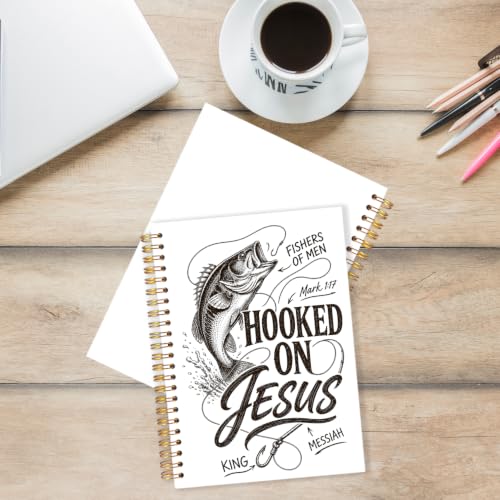 FISHERS
OF MEN
Mark 1:17
HOOKED
ON
JESUS
MESSIAH
KING